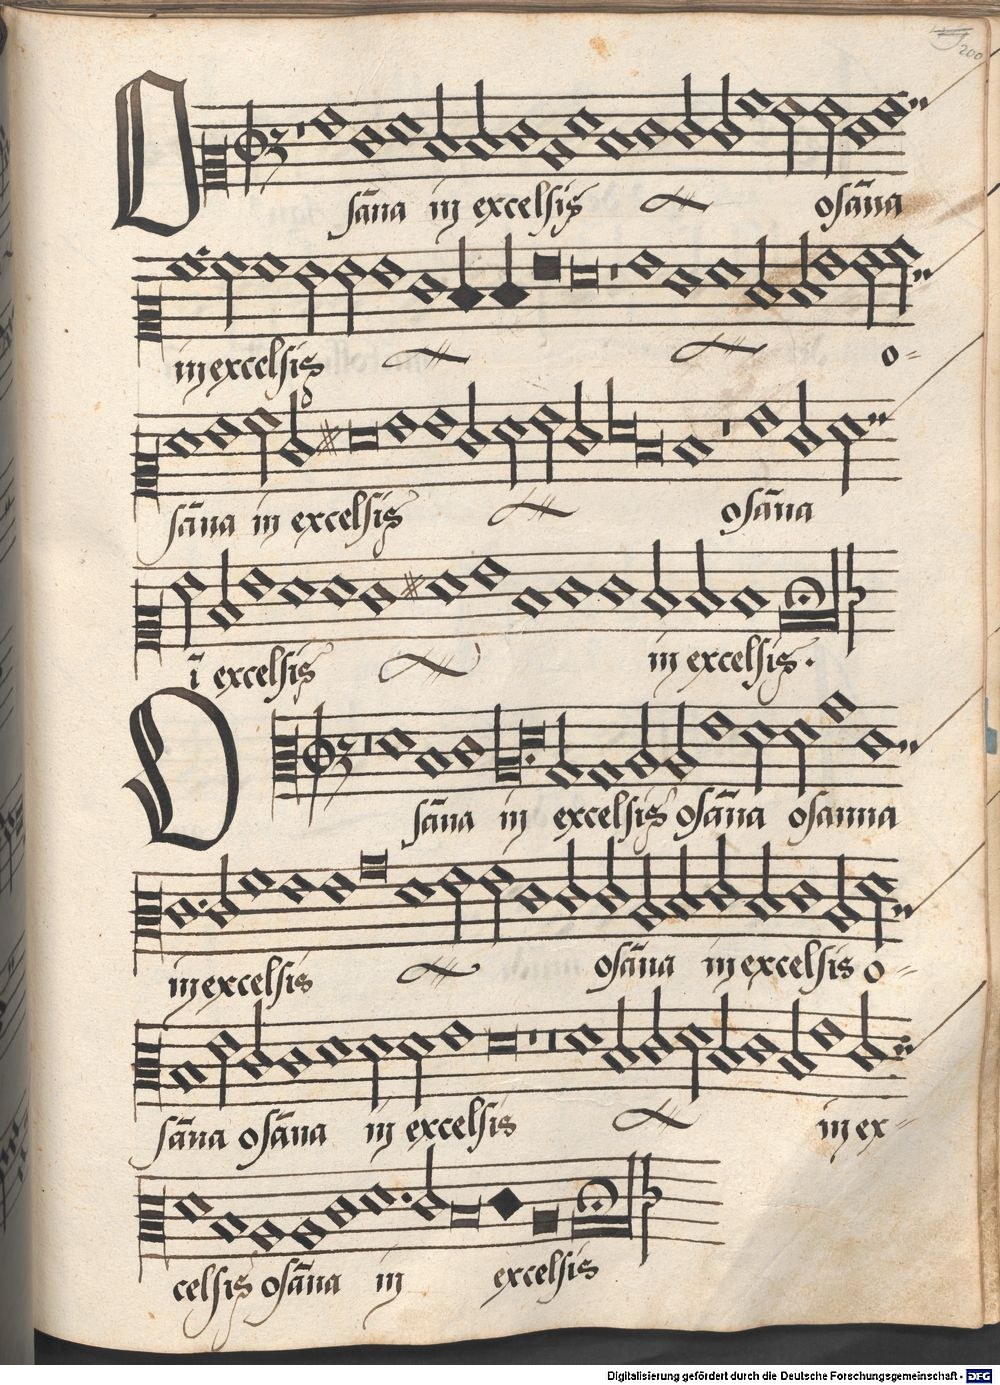 200
Osāna in excelsis osāna
in excelsis o=
sāna in excelsis osāna
ī excelsis in excelsis.
Osāna in excelsis osāna osanna
in excelsis osāna in excelsis o=
sāna osāna in excelsis in ex=
celsis osāna in excelsis
Digitalisierung gefördert durch die Deutsche Forschungsgemeinschaft - DFG